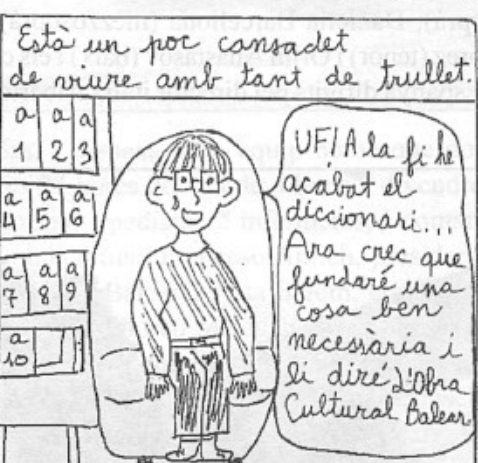 Està un poc cansadet
de viure amb tant de trullet.
a
1
a
2
a
3
a
4
a
5
a
6
a
7
a
8
a
9
a
10
UF! A la fi he
acabat el
diccionari...
Ara crec que
fundaré una
cosa ben
necessària i
li diré L'Obra
Cultural Balear